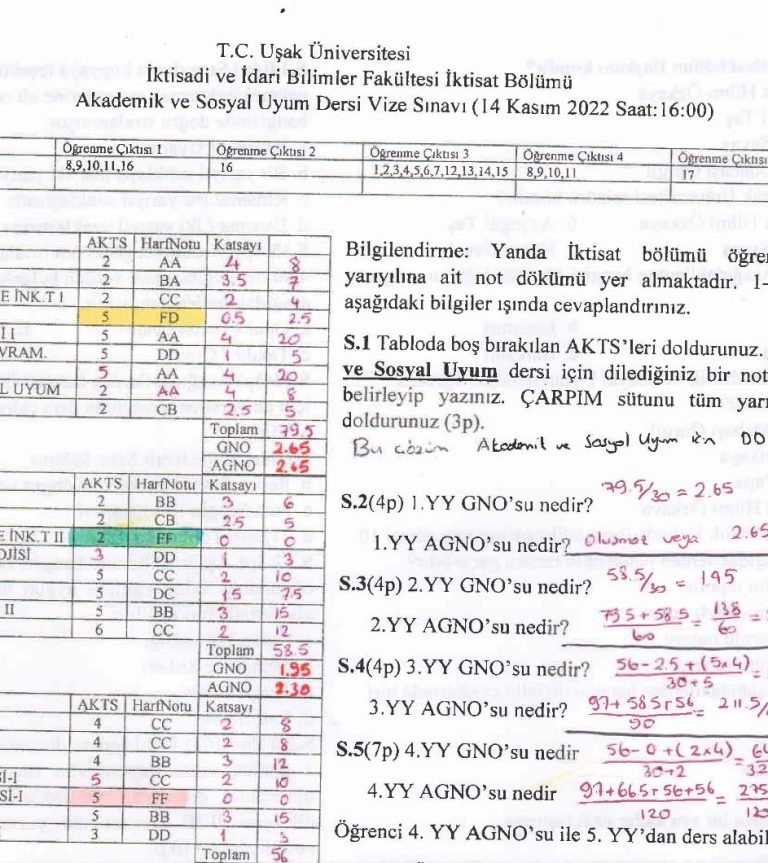 T.C. Uşak Üniversitesi
İktisadi ve İdari Bilimler Fakültesi İktisat Bölümü
Akademik ve Sosyal Uyum Dersi Vize Sınavı (14 Kasım 2022 Saat:16:00)
Öğrenme Çıktısı 1 Öğrenme Çıktısı 2 Öğrenme Çıktısı 3 Öğrenme Çıktısı 4 Öğrenme Çıktısı
8,9,10,11,16 16 1,2,3,4,5,6,7,12,13,14,15 8,9,10,11 17
AKTS HarfNotu Katsayı
2 AA 4 8
2 BA 3.5 7
E İNK.T I 2 CC 2
5 FD 0.5 2.5
I 5 AA 4 20
VRAM. 5 DD 5
5 AA 4 20
L UYUM 2 AA 4 8
2 CB 2,5 5
Toplam 79.5
GNO 2.65
AGNO 2.65
AKTS HarfNotu Katsayı
2 BB 3 6
2 CB 2.5 5
E İNK.T II 2 FF 0 0
OJİSİ 3 DD 1 3
5 CC 2 10
5 DC 1.5 7.5
II 5 BB 3 15
6 CC 2 12
Toplam 58.5
GNO 1,95
AGNO 2.30
AKTS HarfNotu Katsayı
4 CC 2 8
4 CC 2 8
4 BB 3 12
Sİ-I 5 CC 2 10
Sİ-I 5 FF 0 0
5 BB 3 15
3 DD 1 3
Toplam 56
Bilgilendirme: Yanda İktisat bölümü öğren
yarıyılına ait not dökümü yer almaktadır. 1-
aşağıdaki bilgiler ışında cevaplandırınız.
S.1 Tabloda boş bırakılan AKTS'leri doldurunuz.
ve Sosyal Uyum dersi için dilediğiniz bir not
belirleyip yazınız. ÇARPIM sütunu tüm yarı
doldurunuz (3p).
Bu çözüm Akademik ve Sosyal Uyum için DD
S.2(4p) 1.YY GNO'su nedir? 79.5/30 = 2.65
1.YY AGNO'su nedir? olumat veya 2.65
S.3(4p) 2.YY GNO'su nedir? 58.5/30 = 1.95
2.YY AGNO'su nedir? 79.5+58.5/60 = 138/60 =
S.4(4p) 3.YY GNO'su nedir? 56-2.5+(5x4)/30+5 =
3.YY AGNO'su nedir? 97+58.5+56/90 = 211.5/
S.5(7p) 4.YY GNO'su nedir 56-0+(2x4)/30+2 = 64/32
4.YY AGNO'su nedir 97+66.5+56+56/120 = 275/120
Öğrenci 4. YY AGNO'su ile 5. YY'dan ders alabil